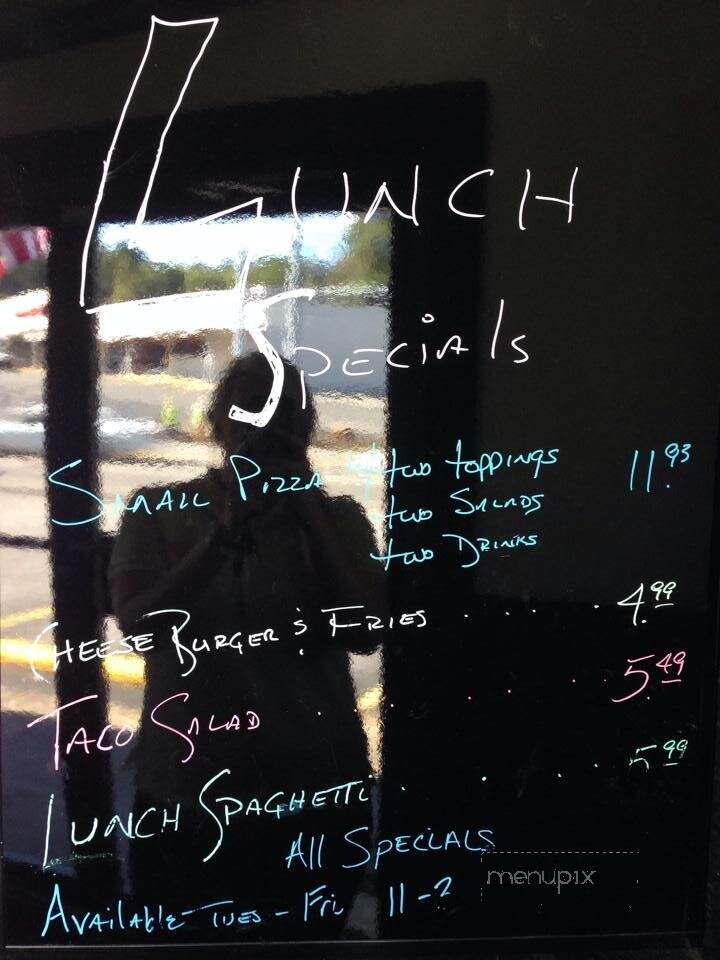 Lunch
Specials
Small Pizza w/ two toppings 11.93
two Salads
two Drinks
Cheese Burger & Fries . . . . . 4.99
Taco Salad . . . . . . 5.49
Lunch Spaghetti . . . . 5.99
All Specials
Available Tues - Fri 11-2
menupix